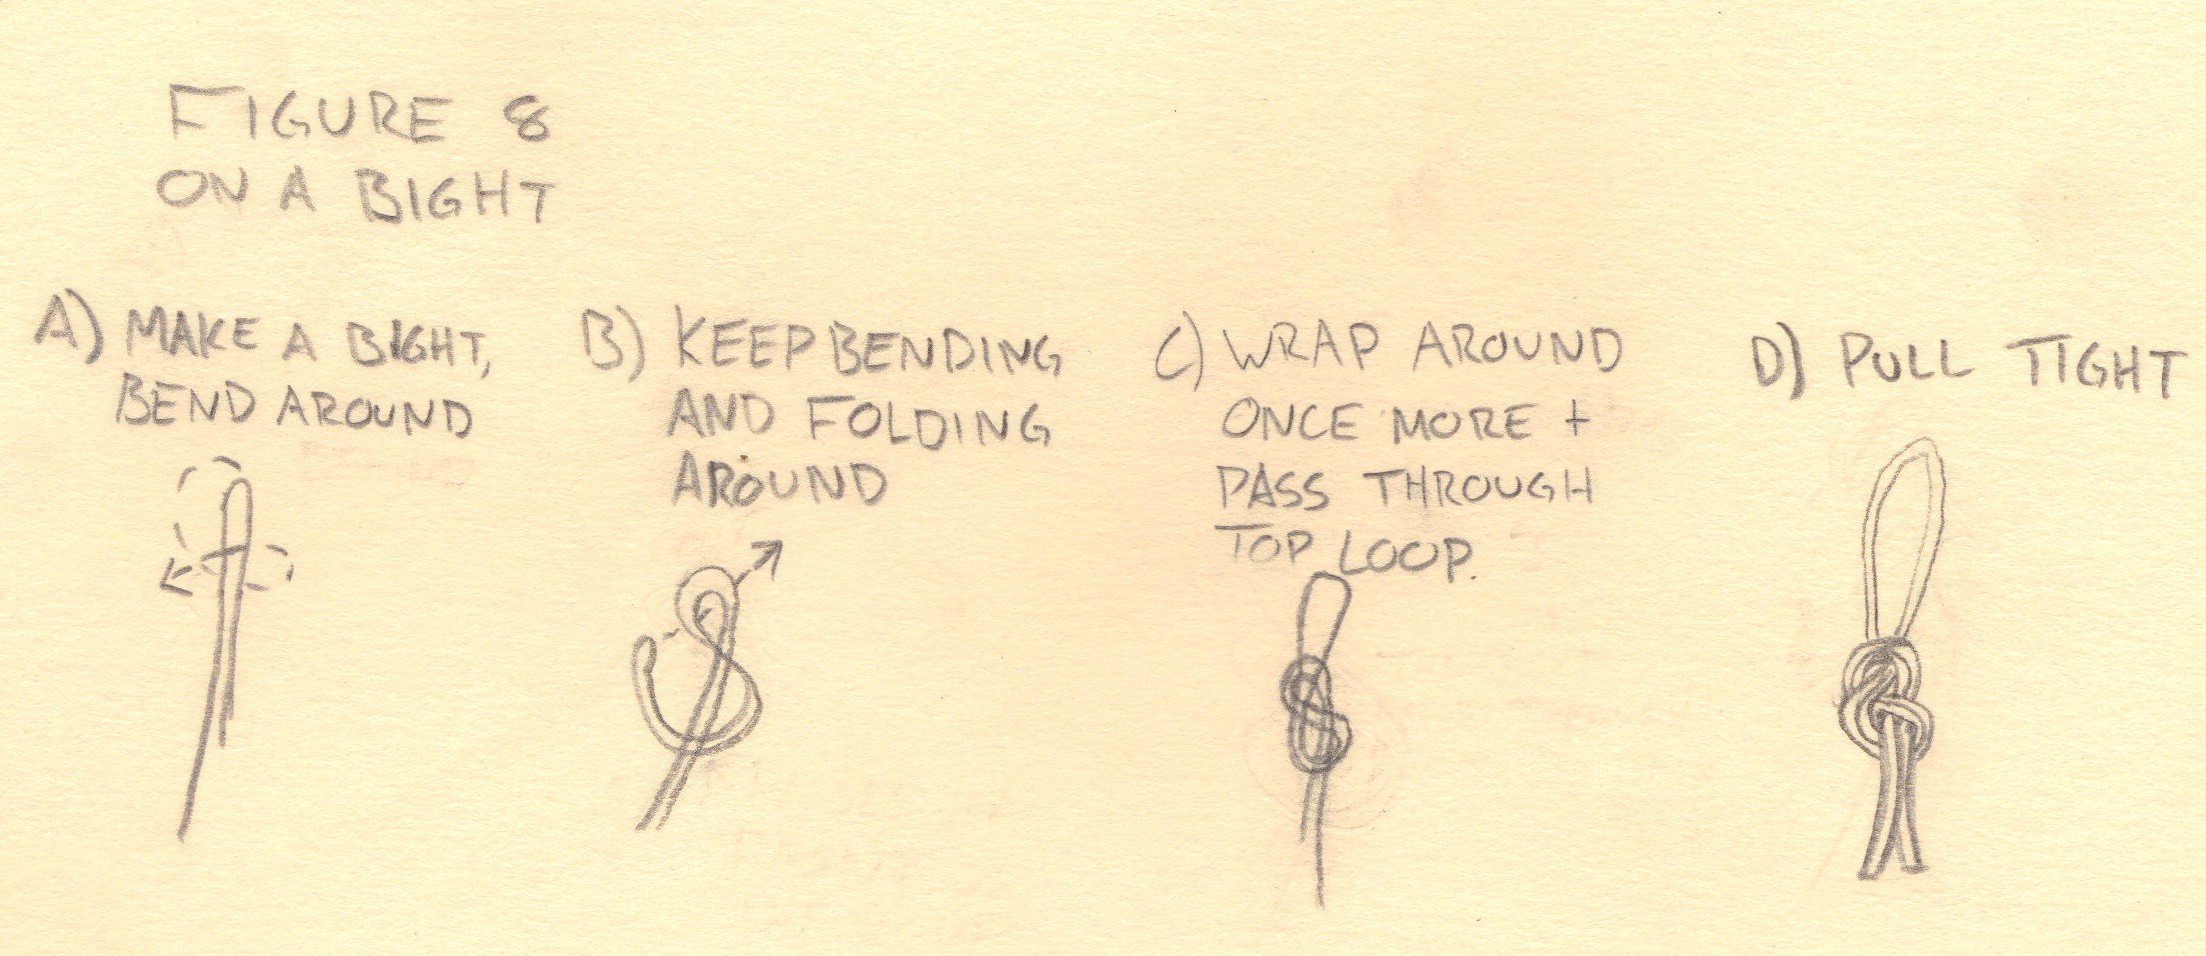 FIGURE 8
ON A BIGHT
A) MAKE A BIGHT,
BEND AROUND
B) KEEP BENDING
AND FOLDING
AROUND
C) WRAP AROUND
ONCE MORE +
PASS THROUGH
TOP LOOP.
D) PULL TIGHT